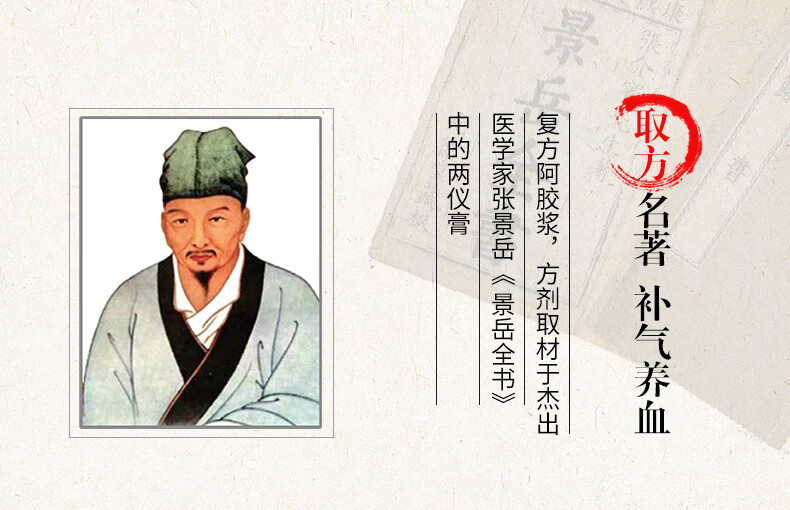 取方名著 补气养血
复方阿胶浆，方剂取材于杰出
医学家张景岳《景岳全书》
中的两仪膏
景岳全書